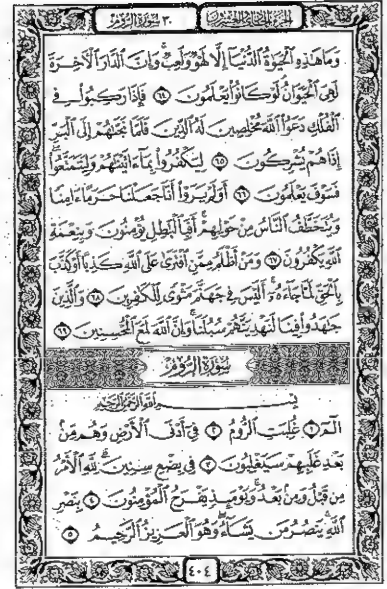 الجزء الحادي والعشرون
٣٠ سورة الروم
وَمَا هَٰذِهِ ٱلْحَيَوٰةُ ٱلدُّنْيَآ إِلَّا لَهْوٌ وَلَعِبٌ ۚ وَإِنَّ ٱلدَّارَ ٱلْأَخِرَةَ
لَهِىَ ٱلْحَيَوَانُ ۚ لَوْ كَانُوا۟ يَعْلَمُونَ ٦٤ فَإِذَا رَكِبُوا۟ فِى
ٱلْفُلْكِ دَعَوُا۟ ٱللَّهَ مُخْلِصِينَ لَهُ ٱلدِّينَ فَلَمَّا نَجَّىٰهُمْ إِلَى ٱلْبَرِّ
إِذَا هُمْ يُشْرِكُونَ ٦٥ لِيَكْفُرُوا۟ بِمَآ ءَاتَيْنَٰهُمْ وَلِيَتَمَتَّعُوا۟ ۖ
فَسَوْفَ يَعْلَمُونَ ٦٦ أَوَلَمْ يَرَوْا۟ أَنَّا جَعَلْنَا حَرَمًا ءَامِنًا
وَيُتَخَطَّفُ ٱلنَّاسُ مِنْ حَوْلِهِمْ ۚ أَفَبِٱلْبَٰطِلِ يُؤْمِنُونَ وَبِنِعْمَةِ
ٱللَّهِ يَكْفُرُونَ ٦٧ وَمَنْ أَظْلَمُ مِمَّنِ ٱفْتَرَىٰ عَلَى ٱللَّهِ كَذِبًا أَوْ كَذَّبَ
بِٱلْحَقِّ لَمَّا جَآءَهُۥٓ ۚ أَلَيْسَ فِى جَهَنَّمَ مَثْوًى لِّلْكَٰفِرِينَ ٦٨ وَٱلَّذِينَ
جَٰهَدُوا۟ فِينَا لَنَهْدِيَنَّهُمْ سُبُلَنَا ۚ وَإِنَّ ٱللَّهَ لَمَعَ ٱلْمُحْسِنِينَ ٦٩
سُورَةُ الرُّومِ
بِسْمِ ٱللَّهِ ٱلرَّحْمَٰنِ ٱلرَّحِيمِ
الٓمٓ ١ غُلِبَتِ ٱلرُّومُ ٢ فِىٓ أَدْنَى ٱلْأَرْضِ وَهُم مِّنۢ
بَعْدِ غَلَبِهِمْ سَيَغْلِبُونَ ٣ فِى بِضْعِ سِنِينَ ۗ لِلَّهِ ٱلْأَمْرُ
مِن قَبْلُ وَمِنۢ بَعْدُ ۚ وَيَوْمَئِذٍ يَفْرَحُ ٱلْمُؤْمِنُونَ ٤ بِنَصْرِ
ٱللَّهِ ۚ يَنصُرُ مَن يَشَآءُ ۖ وَهُوَ ٱلْعَزِيزُ ٱلرَّحِيمُ ٥
٤٠٤